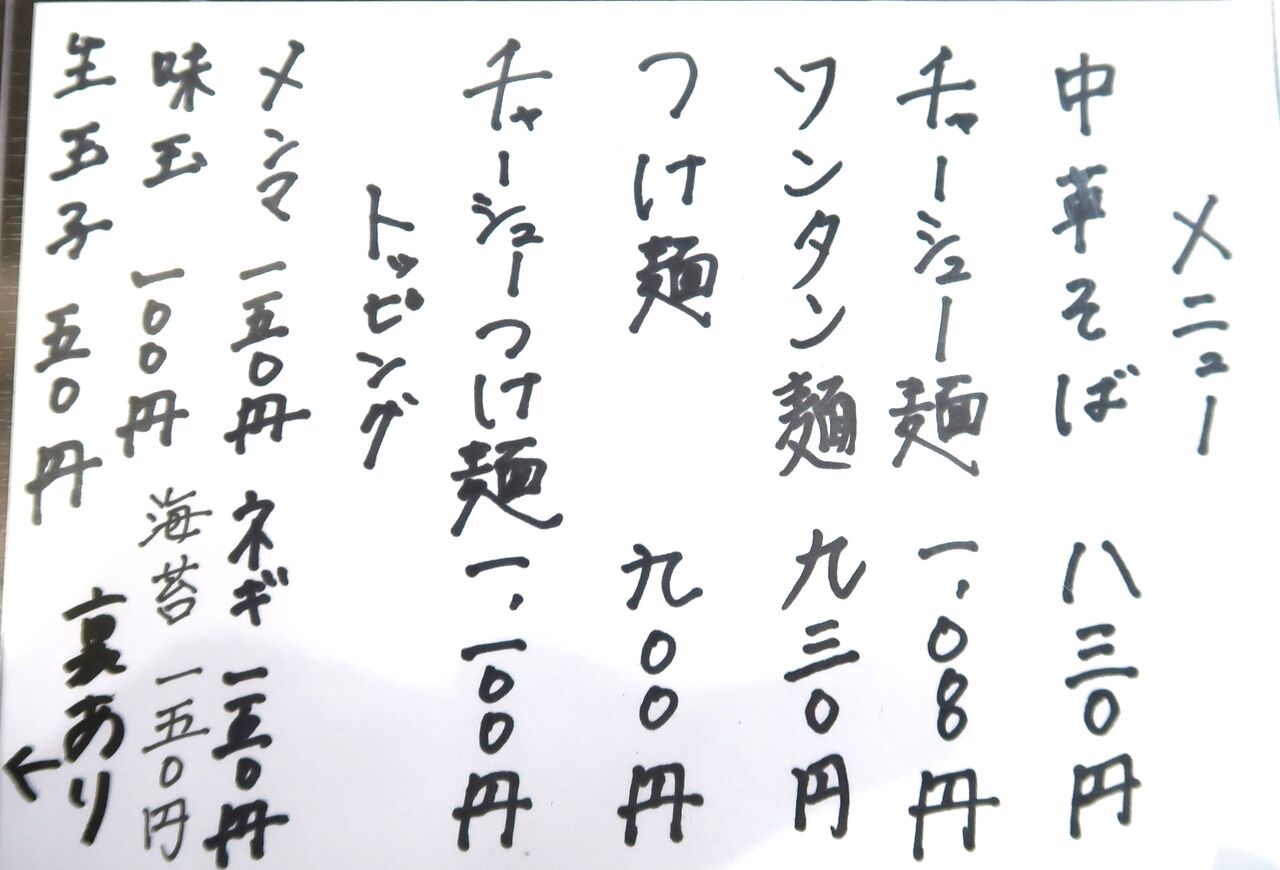 メニュー
中華そば 八三〇円
チャーシュー麺 一、〇8円
ワンタン麺 九三〇円
つけ麺 九〇〇円
チャーシューつけ麺 一、一〇〇円
トッピング
メンマ 一五〇円 ネギ 一五〇円
味玉 一〇〇円 海苔 一五〇円
生玉子 五〇円 裏あり
←